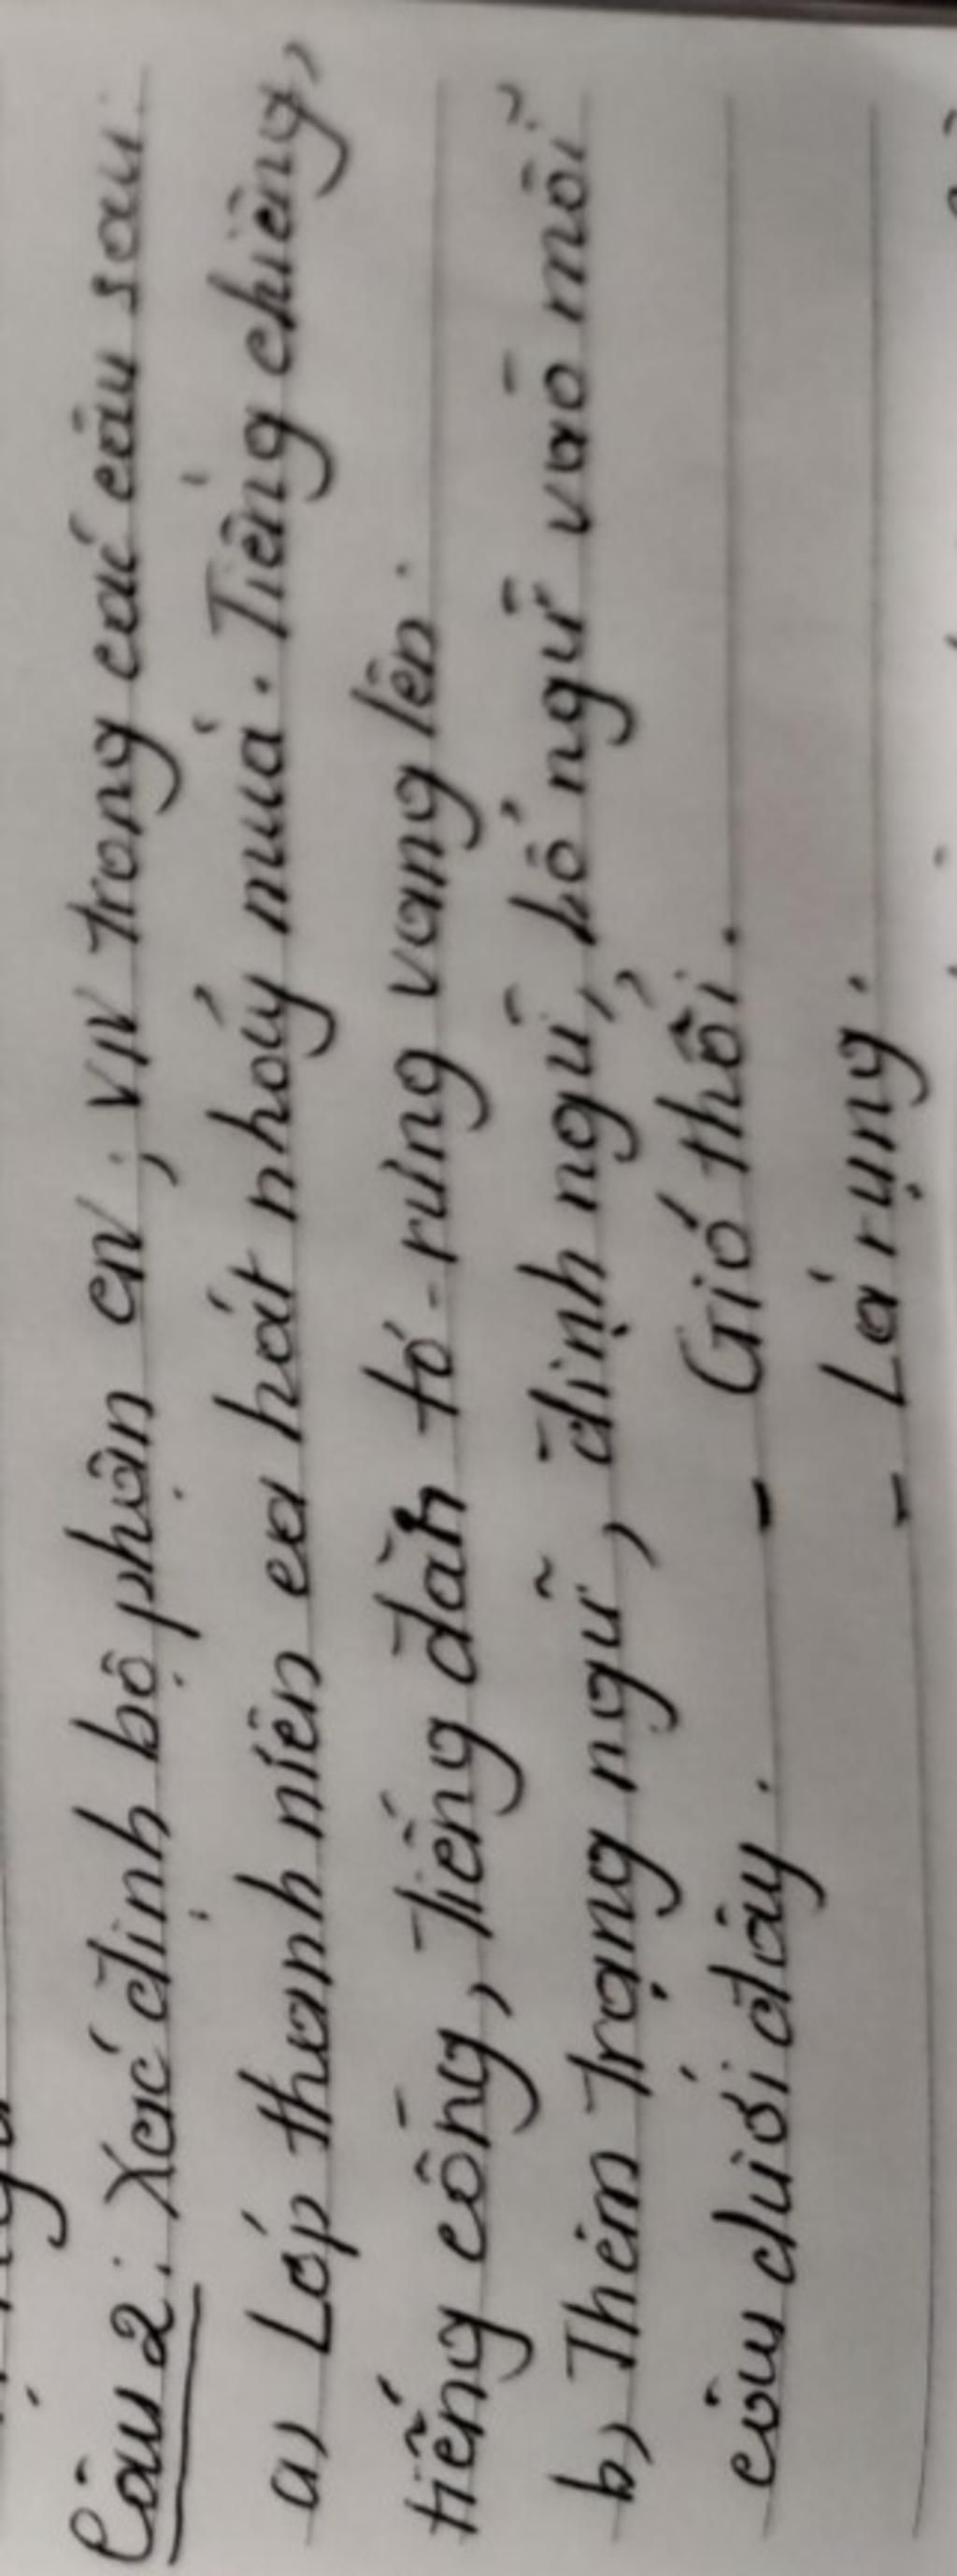 Câu 2: Xác định bộ phận CN, VN trong các câu sau
a, Lớp thanh niên ca hát nhảy múa. Tiếng chiêng,
tiếng cồng, tiếng đàn tơ-rưng vang lên.
b, Thêm trạng ngữ, định ngữ, bổ ngữ vào mỗi
câu dưới đây. - Gió thổi.
- Lá rụng.